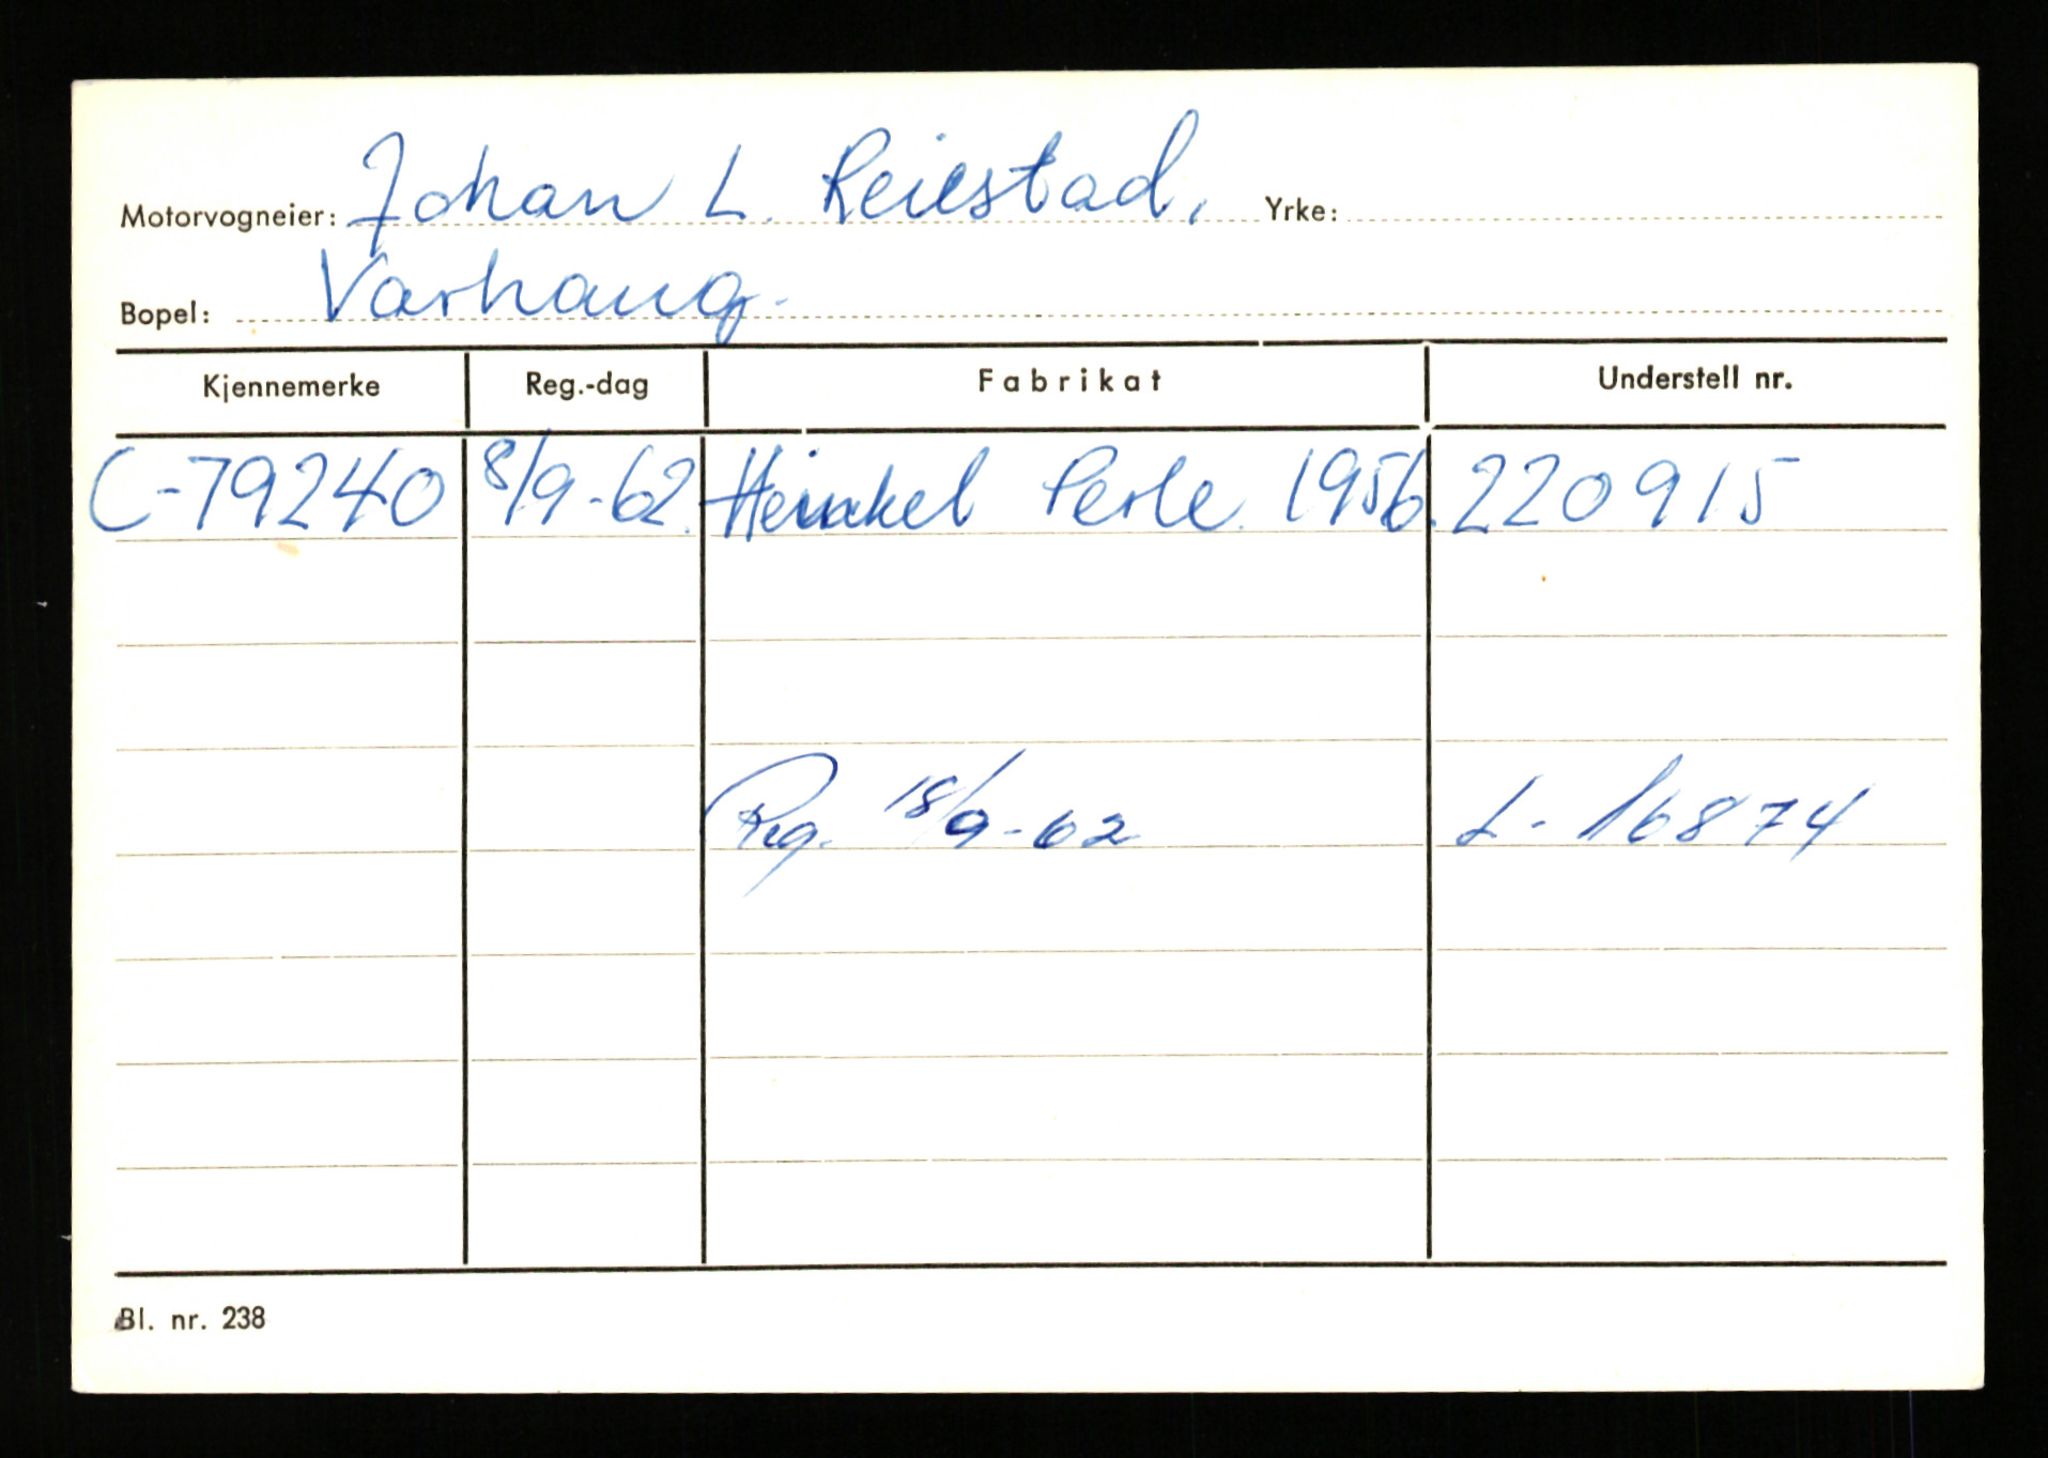 Motorvogneier: Johan L. Reiestad, Yrke:
Bopel: Varhaug.
Kjennemerke Reg.-dag Fabrikat Understell nr.
C-79240 8/9-62. Heinkel Perle. 1956. 220915
Reg. 18/9-62 L-16874
Bl. nr. 238